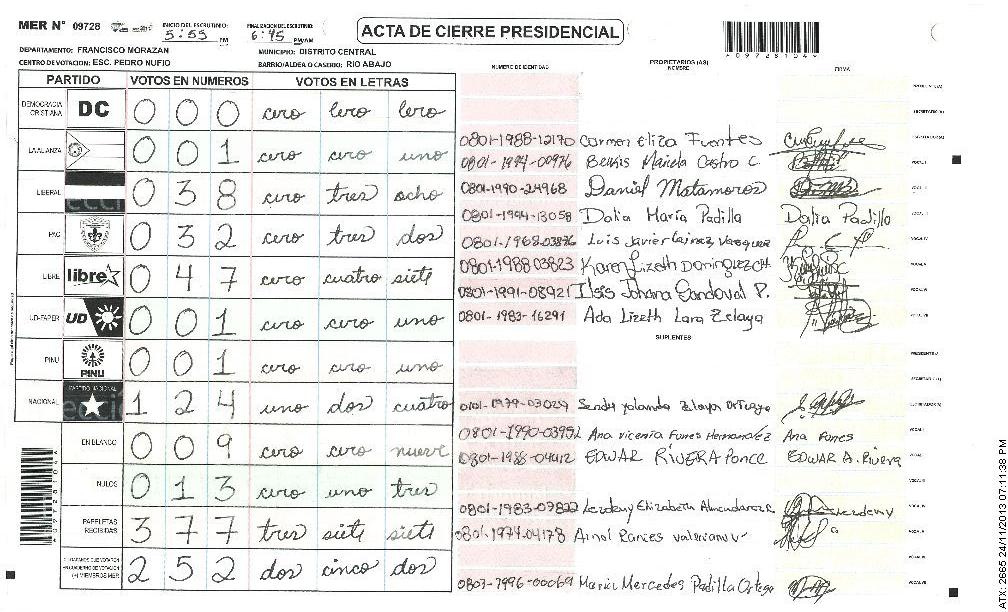 MER N° 09728
INICIO DEL ESCRUTINIO: 5:55 PM
FINALIZACION DEL ESCRUTINIO: 6:45 PM/AM
ACTA DE CIERRE PRESIDENCIAL
DEPARTAMENTO: FRANCISCO MORAZAN
MUNICIPIO: DISTRITO CENTRAL
CENTRO DE VOTACION: ESC. PEDRO NUFIO
BARRIO/ALDEA O CASERIO: RIO ABAJO
PARTIDO VOTOS EN NUMEROS VOTOS EN LETRAS
DEMOCRACIA CRISTIANA DC 0 0 0 cero cero cero
LA ALIANZA 0 0 1 cero cero uno
LIBERAL 0 3 8 cero tres ocho
PAC 0 3 2 cero tres dos
LIBRE libre 0 4 7 cero cuatro siete
UD-FAPER UD 0 0 1 cero cero uno
PINU PINU 0 0 1 cero cero uno
NACIONAL PARTIDO NACIONAL 1 2 4 uno dos cuatro
EN BLANCO 0 0 9 cero cero nueve
NULOS 0 1 3 cero uno tres
PAPELETAS RECIBIDAS 3 7 7 tres siete siete
(+) MIEMBROS MER 2 5 2 dos cinco dos
NUMERO DE IDENTIDAD PROPIETARIOS (AS) NOMBRE FIRMA
0801-1988-12170 Carmen Eliza Fuentes
0801-1994-00976 Mariela Castro C.
0801-1990-24968 Daniel Matamoros
0801-1994-13058 Dalia María Padilla Dalia Padilla
0801-1968-03876 Luis Javier Lainez Vasquez
0801-1988 03823 Karen Lizeth Dominguez
0801-1991-08921 Ilsis Johana Sandoval P.
0801-1983-16291 Ada Lizeth Lara Zelaya
SUPLENTES
-1979-03029 Sendy Yolanda Zelaya Ortega
0801-1990-03952 Ana vicenta Funes Hernandez Ana Funes
0801-1988-04012 EDWAR RIVERA Ponce EDWAR A. Rivera
0801-1983-07822 Elizabeth
0801-1974-04178
0803-1996-00069 Maria Mercedes Padilla Ortega
A097281044
ATX 2665 24/11/2013 07:11:38 PM